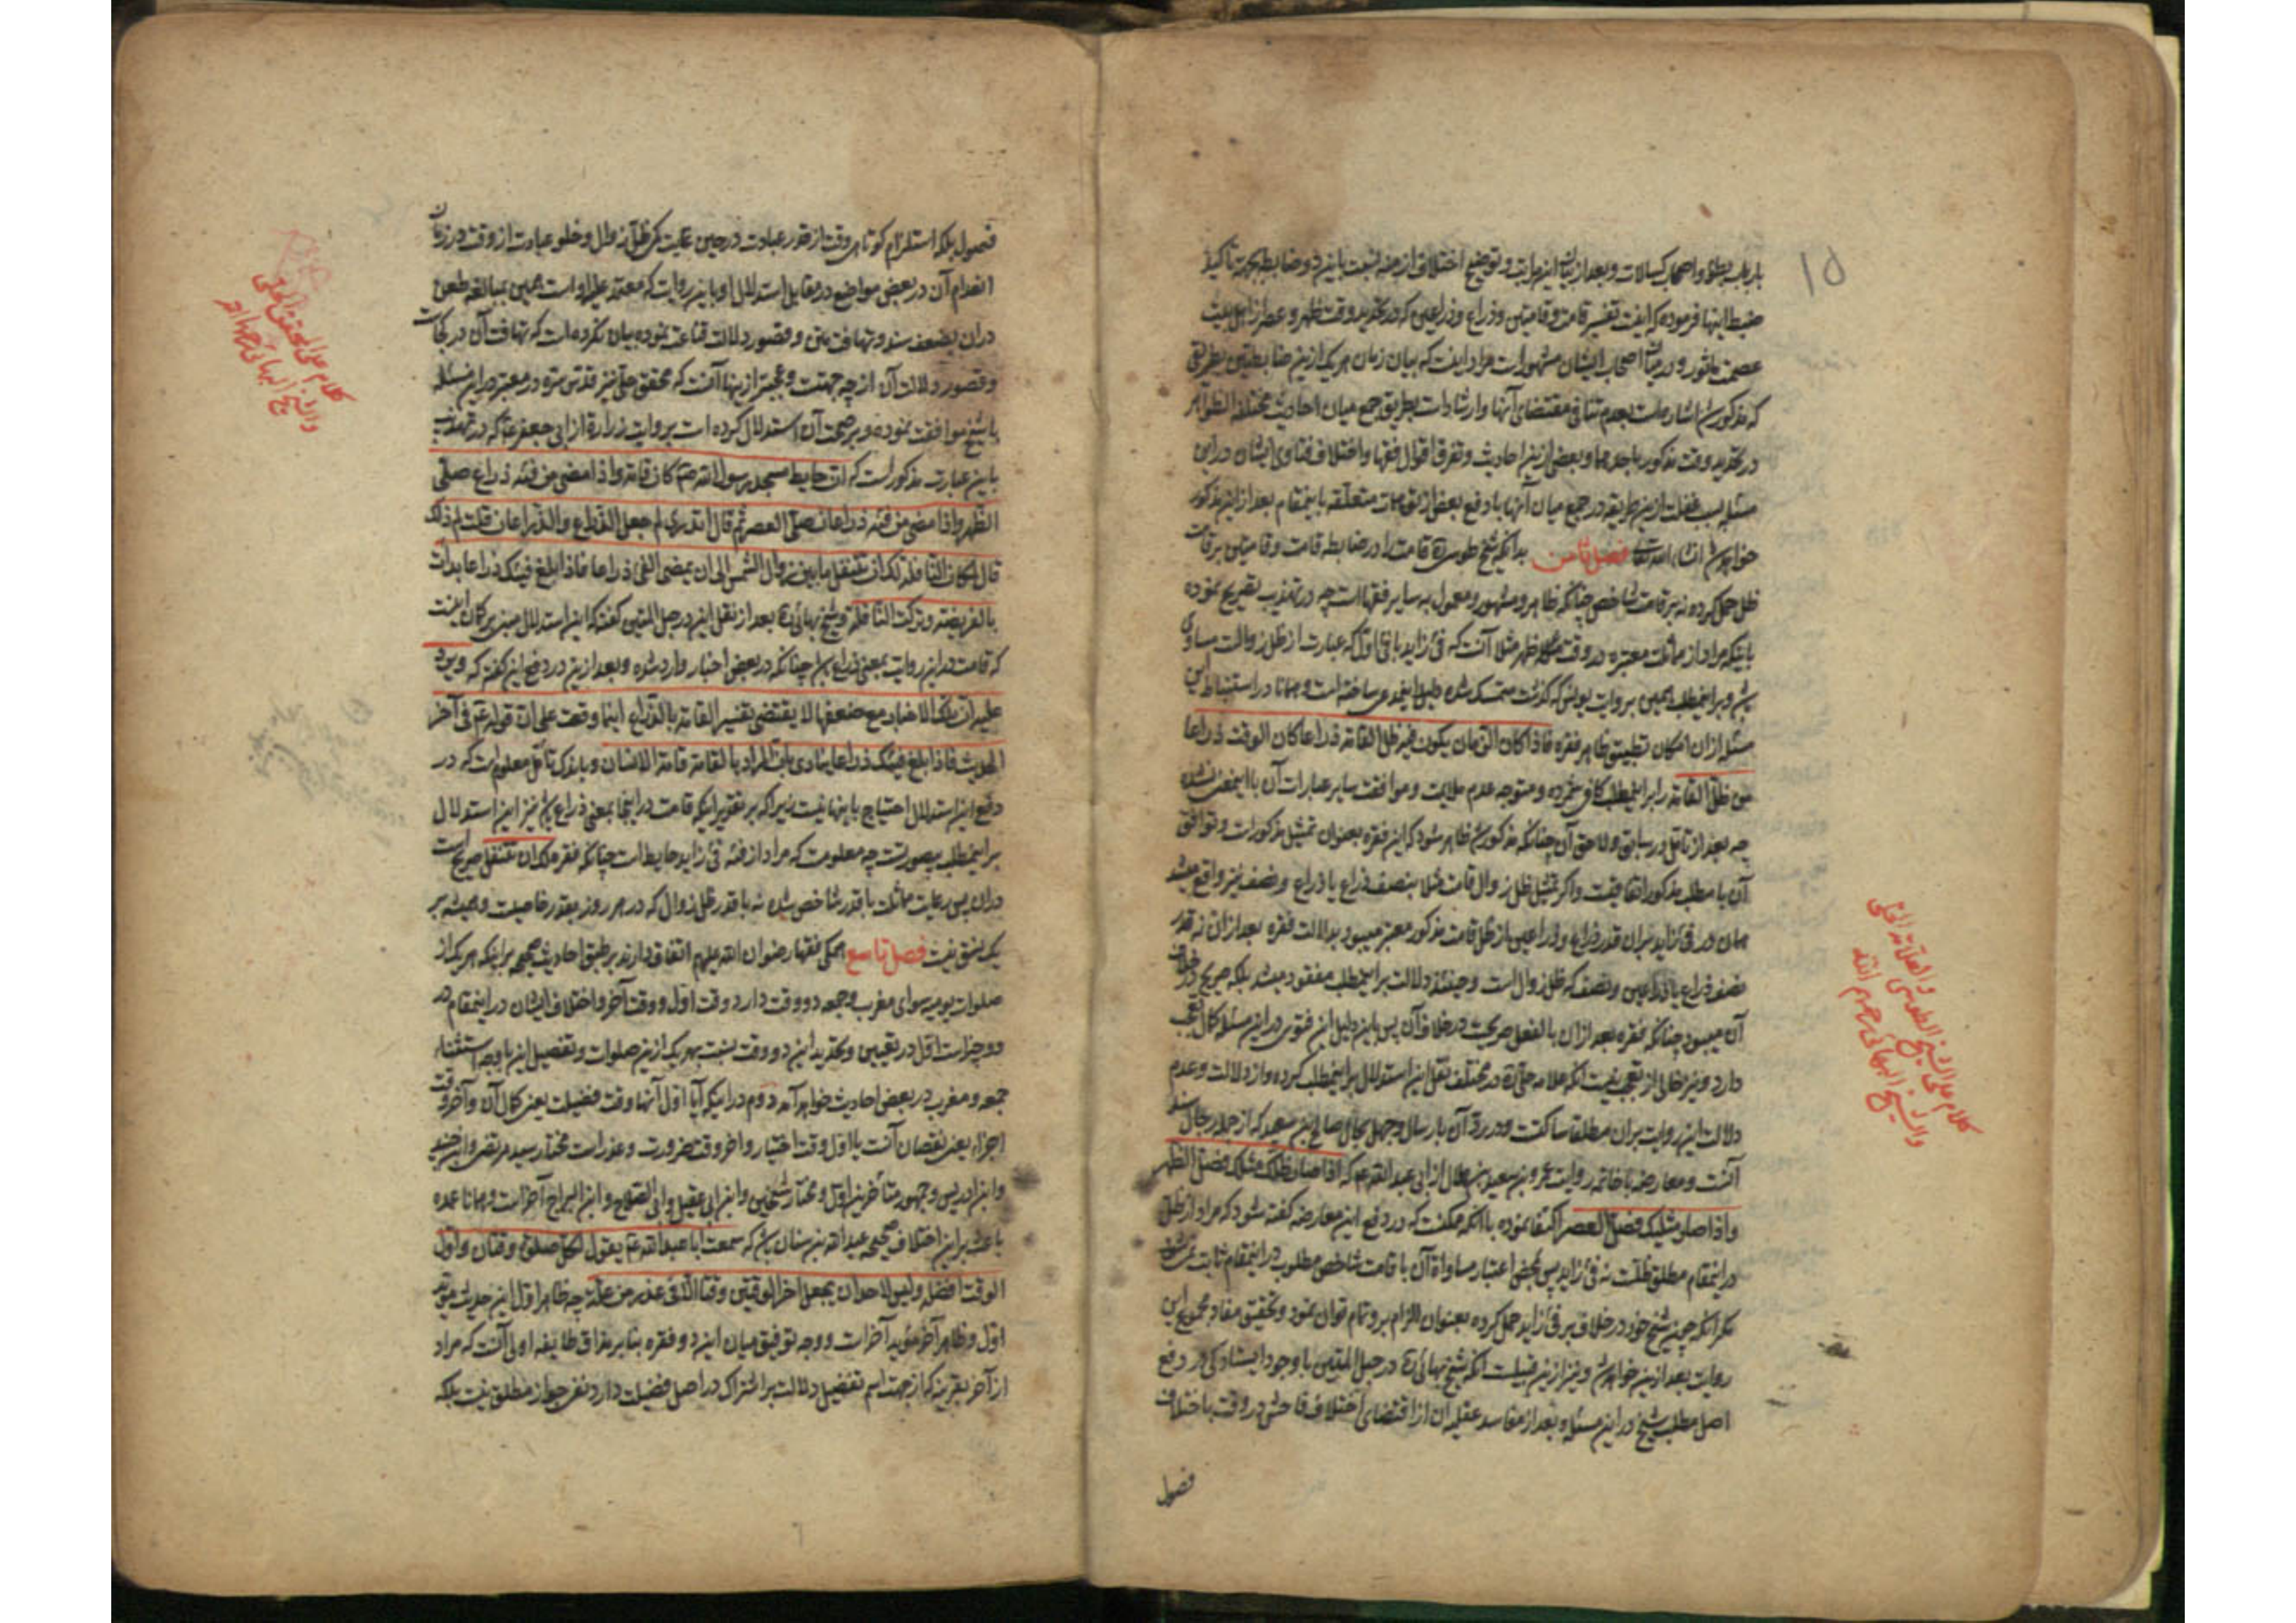 ۱۵
ضبط اینها فرموده که اینست تفسیر قامت و قامتین و ذراع و ذراعین که در تحدید وقت ظهر و عصر از اهل بیت
عصمت مأثور و در میان اصحاب ایشان مشهور است مراد اینست که بیان زمان هر یک ازین ضابطتین بطریقی
که مذکور شد اشاره است بعدم تنافی مقتضای آنها و ارشاد است بطریق جمع میان احادیث مختلفة الظواهر
در تحدید وقت مذکور و بعضی ازین احادیث و تفرق اقوال فقها و اختلاف فتاوی ایشان در این
مسئله بسبب غفلت ازین طریقه در جمع میان آنها با دفع بعضی از متعلقه باینمقام بعد ازین مذکور
خواهد شد انشاء الله تعالی فصل ثامن بدانکه شیخ طوسی ره قامت را در ضابطه قامت و قامتین بر قامت
ظل حمل کرده نه بر قامت شاخص چنانکه ظاهر و مشهور و معمول به سایر فقها است چه در تهذیب تصریح نموده
باینکه مراد از مماثلت معتبره در وقت ظهر مثلا آنست که فئ زاید با فئ اول که عبارت از ظل زوالست مساوی
شود و بر اینمطلب همین بروایت یونس که گذشت متمسک شده
مسئله از ان امکان تطبیق ظاهر فقره فاذا کان الزمان یکون فیه ظل القامة ذراعا کان الوقت ذراعا
من ظل القامة را بر اینمطلب کافی شمرده و متوجه عدم ملایمت و موافقت سایر عبارات آن با اینمعنی نشده
چه بعد از تأمل در سابق و لاحق آن چنانکه مذکور شد ظاهر میشود که این فقره بعنوان تمثیل مذکور است و توافق
آن با مطلب مذکور اتفاقیست و اگر تمثیل ظل زوال قامت مثلا بنصف ذراع یا ذراع و نصف نیز واقع میشد
همان در فئ زاید همان قدر ذراع و ذراعین از ظل قامت مذکور معتبر میبود بدلالت فقره بعد از ان نه قدر
نصف ذراع یا ذراعین و نصف که ظل زوال است و حینئذ دلالت بر اینمطلب مفقود میشد بلکه صریح در خلاف
آن میبود چنانکه فقره بعد از ان بالفعل صریحست در خلاف آن پس باین دلیل این فتوی در این مسئله کمال تعجب
دارد و نیز خالی از تعجبی نیست آنکه علامه حلی ره در مختلف نقل این استدلال بر اینمطلب کرده و از دلالت و عدم
دلالت این روایت بران مطلقا ساکت و در رد آن بارسال و جهل بحال صالح بن سعید که از جمله رجال سند
آنست و معارضه با خاتمه روایت عمرو بن سعید بن هلال از ابی عبد الله ع که اذا صار ظلک مثلک فصل الظهر
و اذا صار مثلیک فصل العصر اکتفا نموده با آنکه ممکنست که در دفع این معارضه گفته شود که مراد از ظل
در اینمقام مطلق ظلست نه فئ زاید پس بمحض اعتبار مساواة آن با قامت شاخص مطلوب در اینمقام ثابت نمیشود
مگر آنکه چون شیخ خود در خلاف بر فئ زاید حمل کرده بعنوان الزام برو تمام توان نمود و تحقیق مفاد مجموع این
روایت بعد ازین خواهد شد و نیز ازین قبیلست آنکه شیخ بهائی ره در حبل المتین با وجود ایستادگی در دفع
اصل مطلب شیخ در این مسئله و بعد از مفاسد عقلیه ان از اقتضای اختلاف فاحش در وقت باختلاف
فصول
کلام علی الشیخ الطوسی والعلامة الحلی
والشیخ البهائی رحمهم الله
فصول بلکه استلزام کوتاهی وقت از قدر عبادت در حین غایت کمی ظل زوال و خلو عبادت از وقت در زمان
انعدام آن در بعضی مواضع در مقابل استدلال او باین روایت که معتمد علیه او است همین بمبالغه طعن
دران بضعف سند و تهافت متن و قصور دلالت قناعت نموده بیان نکرده است که تهافت آن در کجاست
و قصور دلالت آن از چه جهتست و عجبتر از اینها آنست که محقق حلی نیز قدس سره در معتبر در این مسئله
با شیخ موافقت نموده و بر صحت آن استدلال کرده است بروایت زرارة از ابی جعفر ع که در تهذیب
باین عبارت مذکور است که ان حایط مسجد رسول الله ص کان قامة و اذا مضی من فیئه ذراع صلی
الظهر و اذا مضی من فیئه ذراعان صلی العصر ثم قال اتدری لم جعل الذراع و الذراعان قلت لم ذلک
قال لمکان النافلة لک ان تتنفل ما بین زوال الشمس الی ان یمضی الفئ ذراعا فاذا بلغ فیئک ذراعا بدأت
بالفریضة و ترکت النافلة و شیخ بهائی ره بعد از نقل این در حبل المتین گفته که این استدلال مبنی بر کمان اینست
که قامت در این روایت بمعنی ذراع باشد چنانکه در بعضی اخبار وارد شده و بعد ازین در دفع این گفته که و یرد
علیه ان تلک الاخبار مع ضعفها لا یقتضی تفسیر القامة بالذراع اینما وقعت علی ان قوله ع فی آخر
الحدیث فاذا بلغ فیئک ذراعا ینادی بان المراد بالقامة قامة الانسان و باندک تأمل معلوم است که در
دفع این استدلال احتیاج باینها نیست زیرا که بر تقدیر اینکه قامت در اینجا بمعنی ذراع باشد نیز این استدلال
بر اینمطلب بیصورتست چه معلومست که مراد از فیئه فئ زاید حایط است چنانکه فقره لک ان تتنفل صریح است
دران پس رعایت مماثلت با قدر شاخص شده نه با قدر ظل زوال که در هر روز بقدر خاصیست و همیشه بر
یک نسق نیست فصل تاسع همکی فقها رضوان الله علیهم اتفاق دارند بر طبق احادیث صحیحه بر اینکه هر یک از
صلوات یومیه سوای مغرب و جمعه دو وقت دارد وقت اول و وقت آخر و اختلاف ایشان در اینمقام در
دو چیز است اول در تعیین و تحدید این دو وقت نسبت بهر یک ازین صلوات و تفصیل این با وجه استثناء
جمعه و مغرب در بعضی احادیث خواهد آمد دوم در اینکه آیا اول آنها وقت فضیلت یعنی کمال آن و آخر وقت
اجزاء یعنی نقصان آنست یا اول وقت اختیار و آخر وقت ضرورت و عذر است مختار سید مرتضی و ابن جنید
و ابن ادریس و جمهور متأخرین اول و مختار شیخین و ابن ابی عقیل و ابی الصلاح و ابن البراج آخر است و همانا عمده
باعث بر این اختلاف صحیحه عبد الله بن سنان باشد که سمعت ابا عبد الله ع یقول لکل صلوة وقتان و اول
الوقت افضله و لیس لاحد ان یجعل اخر الوقتین وقتا الا فی عذر من علة چه ظاهر اول این حدیث مؤید
اول و ظاهر آخر مؤید آخر است و وجه توفیق میان این دو فقره بنا بر مذاق طایفه اولی آنست که مراد
از آخر بقرینه که از جهت اسم تفضیل دلالت بر اشتراک در اصل فضیلت دارد نفی جواز مطلق نیست بلکه
کلام علی المحقق الحلی
والشیخ البهائی رحمهما الله